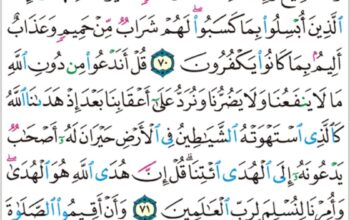 ٱلَّذِينَ أُبۡسِلُواْ بِمَا كَسَبُواْۖ لَهُمۡ شَرَابٞ مِّنۡ حَمِيمٖ وَعَذَابٌ
أَلِيمُۢ بِمَا كَانُواْ يَكۡفُرُونَ ٧٠ قُلۡ أَنَدۡعُواْ مِن دُونِ ٱللَّهِ
مَا لَا يَنفَعُنَا وَلَا يَضُرُّنَا وَنُرَدُّ عَلَىٰٓ أَعۡقَابِنَا بَعۡدَ إِذۡ هَدَىٰنَا ٱللَّهُ
كَٱلَّذِي ٱسۡتَهۡوَتۡهُ ٱلشَّيَٰطِينُ فِي ٱلۡأَرۡضِ حَيۡرَانَ لَهُۥٓ أَصۡحَٰبٞ
يَدۡعُونَهُۥٓ إِلَى ٱلۡهُدَى ٱئۡتِنَاۗ قُلۡ إِنَّ هُدَى ٱللَّهِ هُوَ ٱلۡهُدَىٰۖ
وَأُمِرۡنَا لِنُسۡلِمَ لِرَبِّ ٱلۡعَٰلَمِينَ ٧١ وَأَنۡ أَقِيمُواْ ٱلصَّلَوٰةَ